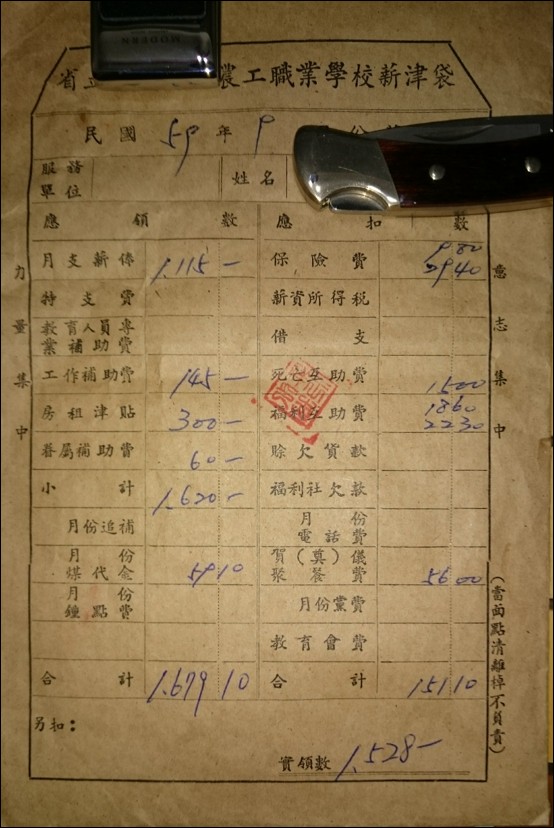 MODERN
省立 農工職業學校薪津袋
民國 59 年 9 份
服務單位 姓名
應領數 應扣數
月支薪俸 1,115— 保險費 9 80
29 40
特支費 薪資所得稅
教育人員專業補助費 借支
工作補助費 145— 死亡互助費 15 00
房租津貼 300— 福利互助費 18 60
22 30
眷屬補助費 60— 賒欠貨款
小計 1,620— 福利社欠款
月份追補 月份電話費
月份煤代金 59 10 賀(奠)儀聚餐費 56 00
月份鐘點費 月份黨費
教育會費
合計 1,679 10 合計 151 10
另扣:
實領數 1,528—
力量集中
意志集中
(當面點清離棹不負責)